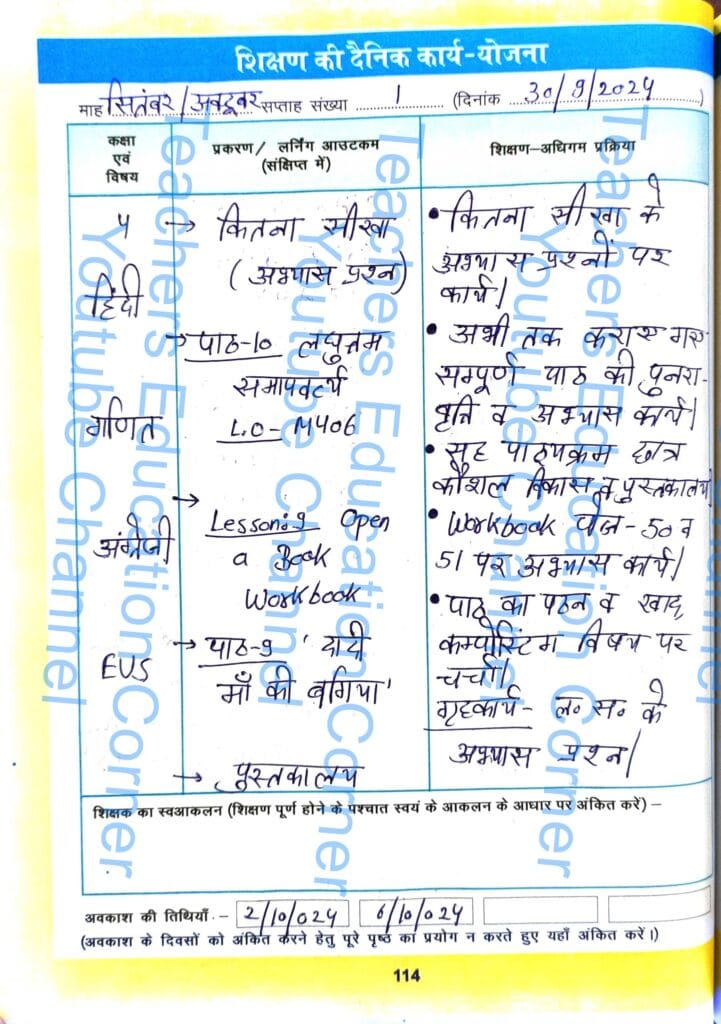 शिक्षण की दैनिक कार्य-योजना
माह सितंबर/अक्टूबर सप्ताह संख्या 1 (दिनांक 30/9/2024)
कक्षा
एवं
विषय
प्रकरण/ लर्निंग आउटकम
(संक्षिप्त में)
शिक्षण-अधिगम प्रक्रिया
५
हिंदी
गणित
अंग्रेजी
EVS
→ कितना सीखा
(अभ्यास प्रश्न)
→ पाठ-10 लघुत्तम
समापवर्त्य
L.O- M406
→ Lesson:9 Open
a Book
Workbook
→ पाठ-9 'दादी
माँ की बगिया'
→ पुस्तकालय
• कितना सीखा के
अभ्यास प्रश्नों पर
कार्य।
• अभी तक कराए गए
सम्पूर्ण पाठ की पुनरा-
वृत्ति व अभ्यास कार्य।
• सह पाठ्यक्रम छात्र
कौशल विकास व पुस्तकालय।
• Workbook पेज- 50 व
51 पर अभ्यास कार्य।
• पाठ का पठन व खाद,
कम्पोस्टिंग विषय पर
चर्चा।
गृहकार्य- ल० स० के
अभ्यास प्रश्न।
शिक्षक का स्वआकलन (शिक्षण पूर्ण होने के पश्चात स्वयं के आकलन के आधार पर अंकित करें) –
अवकाश की तिथियाँ - 2/10/024 6/10/024
(अवकाश के दिवसों को अंकित करने हेतु पूरे पृष्ठ का प्रयोग न करते हुए यहाँ अंकित करें।)
114
Teachers Education Corner
Youtube Channel
Teachers Education Corner
Youtube Channel
Teachers Education Corner
Youtube Channel